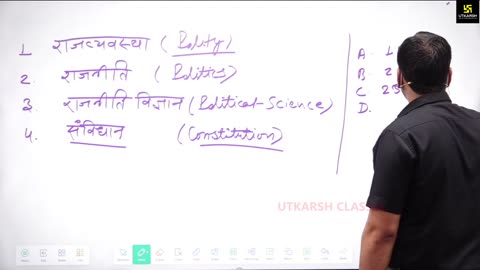 UTKARSH
1. राजव्यवस्था (Polity)
2. राजनीति (Politics)
3. राजनीति विज्ञान (Political-Science)
4. संविधान (Constitution)
A. 1
B. 2
C 23
D.
UTKARSH CLAS